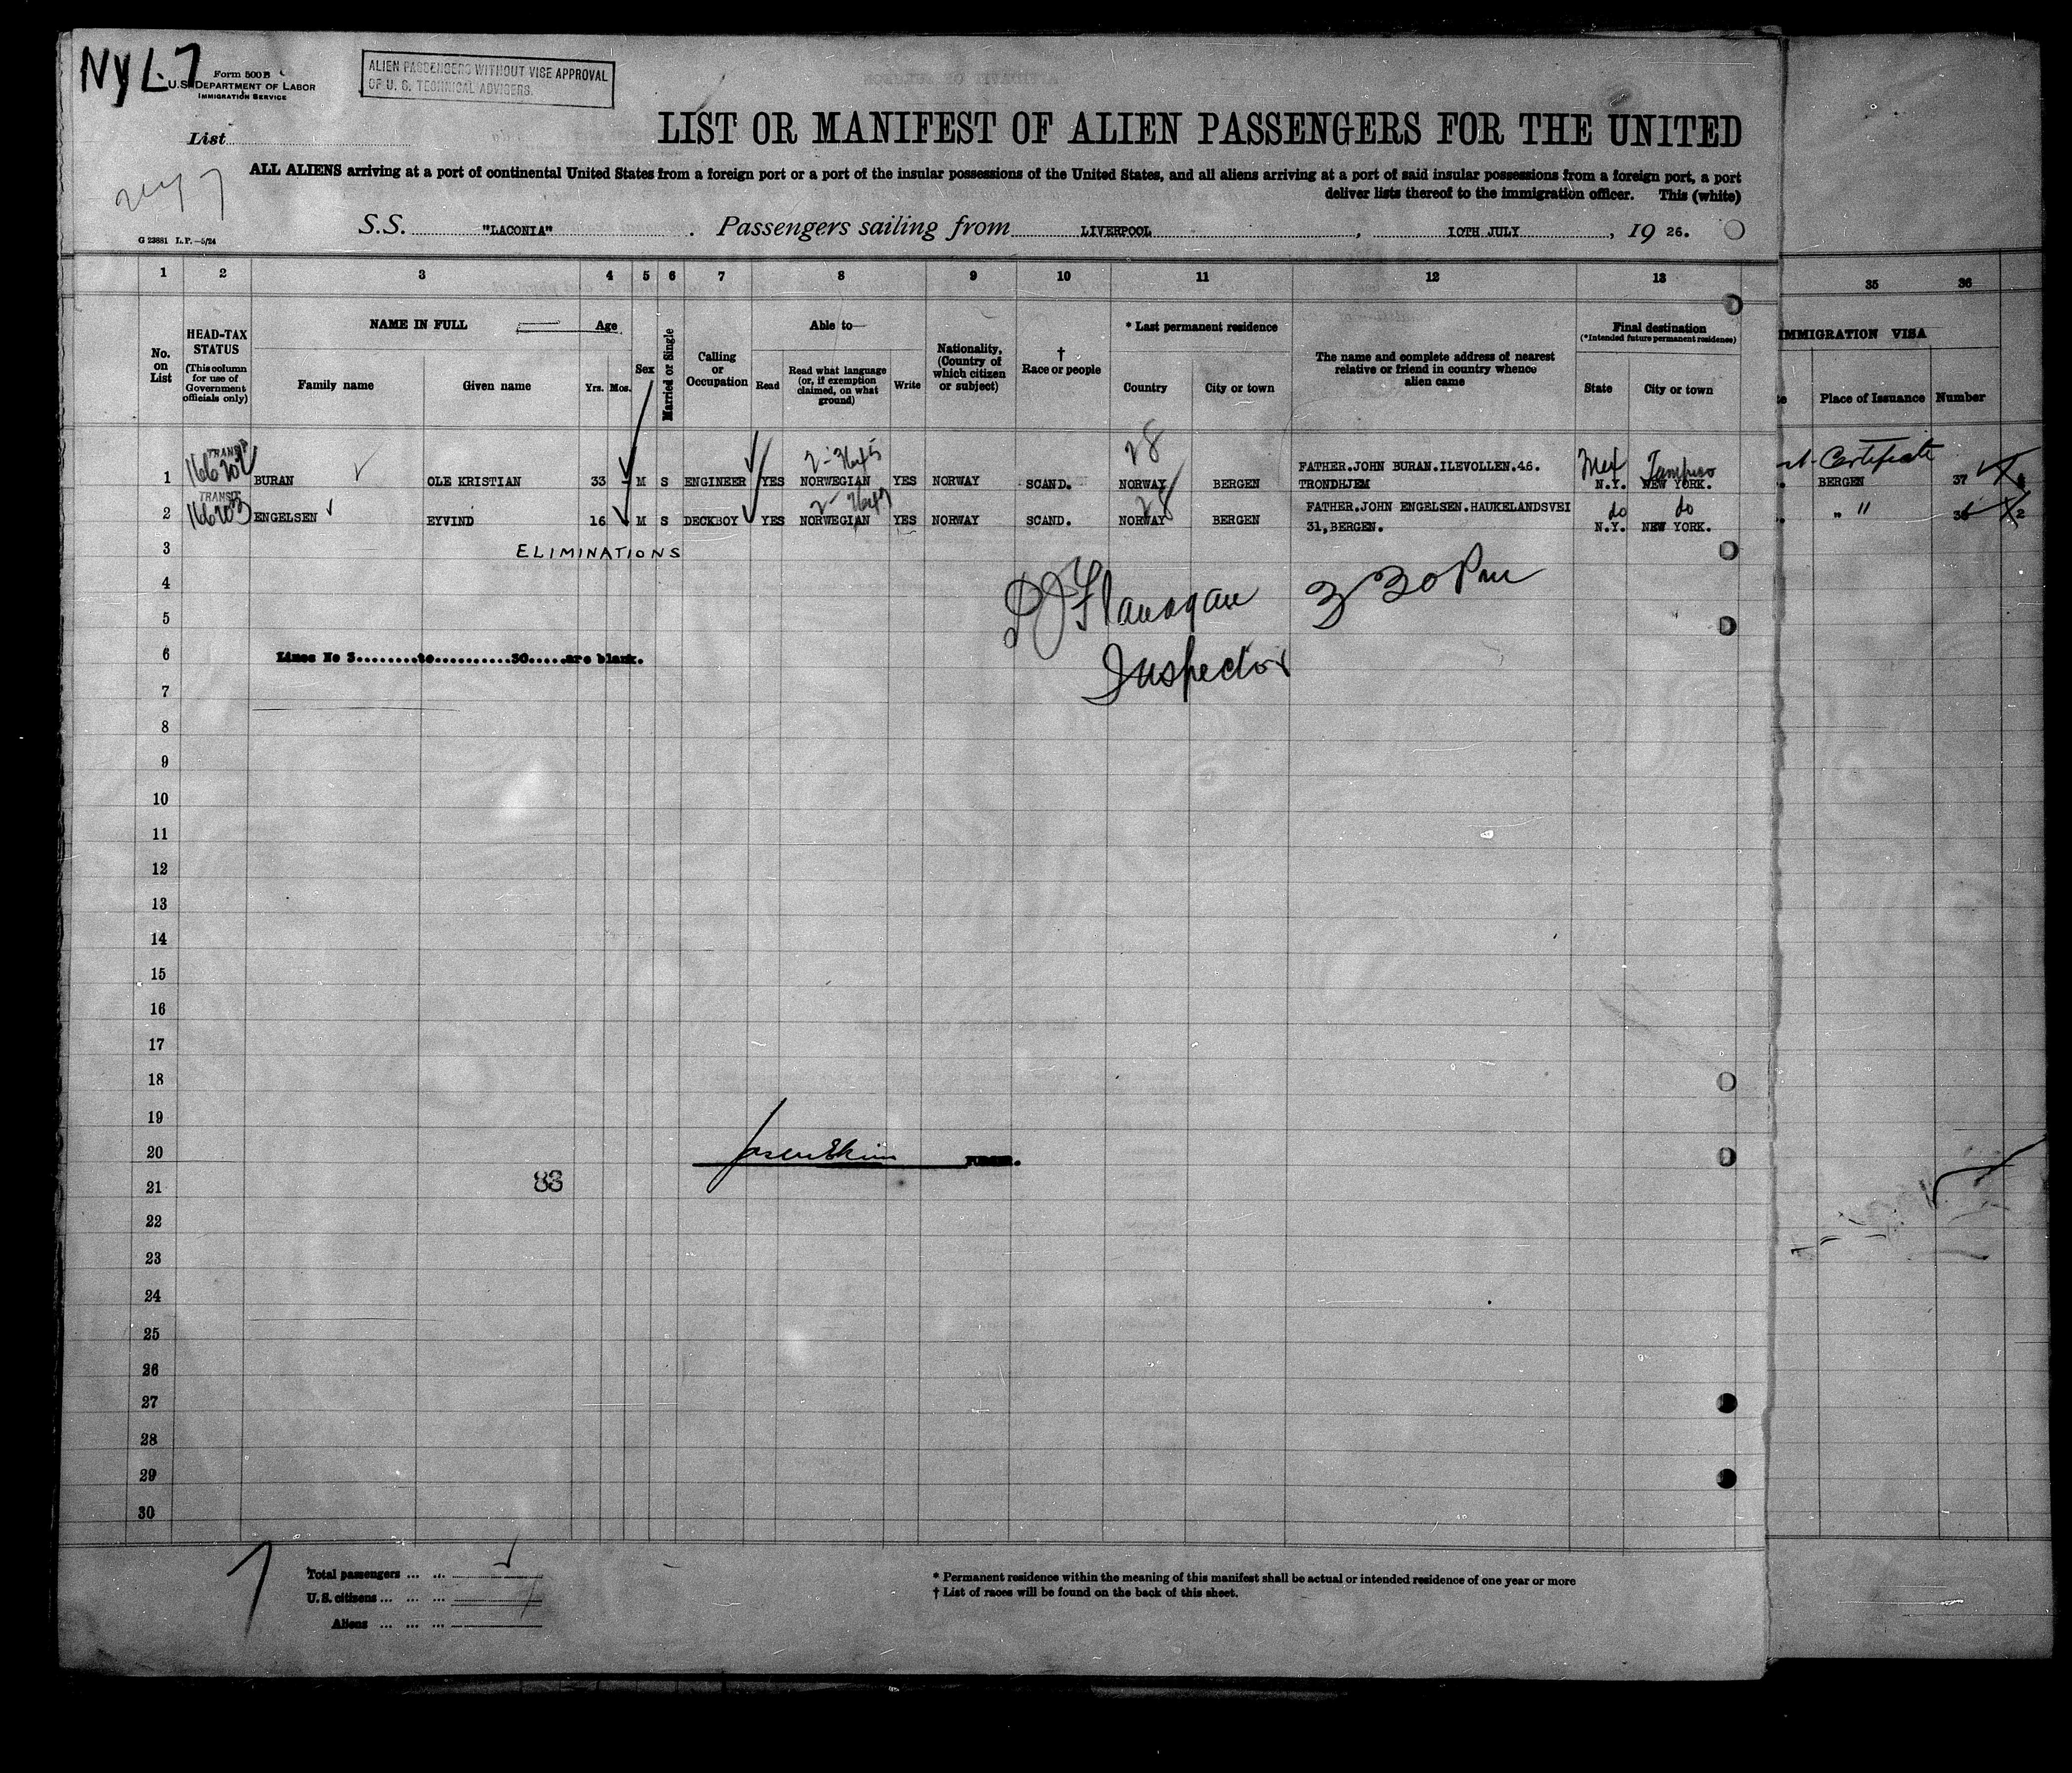 NYL 7
Form 500 B
U.S. DEPARTMENT OF LABOR
IMMIGRATION SERVICE
ALIEN PASSENGERS WITHOUT VISE APPROVAL
OF U. S. TECHNICAL ADVISERS.
List
LIST OR MANIFEST OF ALIEN PASSENGERS FOR THE UNITED
ALL ALIENS arriving at a port of continental United States from a foreign port or a port of the insular possessions of the United States, and all aliens arriving at a port of said insular possessions from a foreign port, a port
deliver lists thereof to the immigration officer. This (white)
S.S. "LACONIA". Passengers sailing from LIVERPOOL, 10TH JULY, 19 26.
G 23881 L.P.—5/24
1 2 3 4 5 6 7 8 9 10 11 12 13 35 36
No. on List
HEAD-TAX STATUS
(This column for use of Government officials only)
NAME IN FULL
Family name
Given name
Age
Yrs. Mos.
Sex
Married or Single
Calling or Occupation
Able to—
Read
Read what language (or, if exemption claimed, on what ground)
Write
Nationality, (Country of which citizen or subject)
† Race or people
* Last permanent residence
Country
City or town
The name and complete address of nearest relative or friend in country whence alien came
Final destination
(*Intended future permanent residence)
State
City or town
IMMIGRATION VISA
Place of Issuance
Number
TRANSIT 28 Mex Tampico Certificate
1 BURAN OLE KRISTIAN 33 - M S ENGINEER YES NORWEGIAN YES NORWAY SCAND. NORWAY BERGEN FATHER.JOHN BURAN.ILEVOLLEN.46. TRONDHJEM N.Y. NEW YORK. BERGEN 37
TRANSIT 28 do do
2 ENGELSEN EYVIND 16 M S DECKBOY YES NORWEGIAN YES NORWAY SCAND. NORWAY BERGEN FATHER.JOHN ENGELSEN.HAUKELANDSVEI 31,BERGEN. N.Y. NEW YORK. " "
3 ELIMINATIONS
4 P J Flanagan 3 30 Pm
5
6 Lines No 3........to..........30.....are blank. Inspector
7
8
9
10
11
12
13
14
15
16
17
18
19
20
21 83
22
23
24
25
26
27
28
29
30
Total passengers ... ...
U.S. citizens ... ... ...
Aliens ... ... ...
* Permanent residence within the meaning of this manifest shall be actual or intended residence of one year or more
† List of races will be found on the back of this sheet.